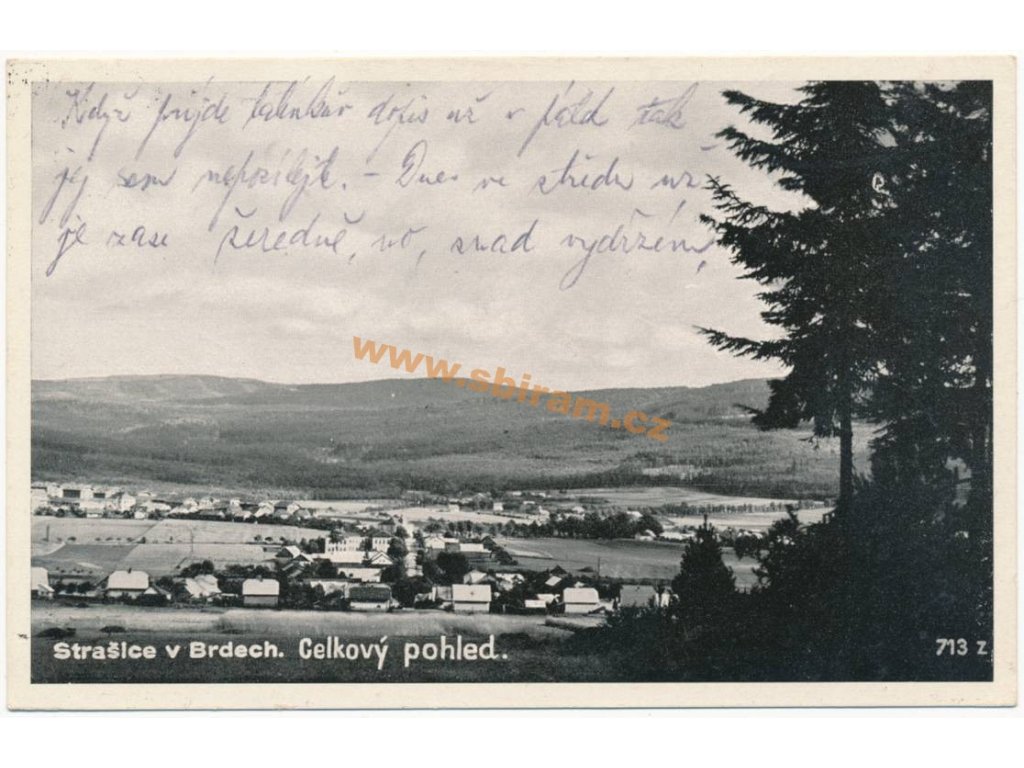 Když přijde
dopis už v pátd tak
jej sem neposílejte. - Dnes ve středu už
je zase šeredně, no, snad vydržím,
www.sbiram.cz
Strašice v Brdech. Celkový pohled.
713 z